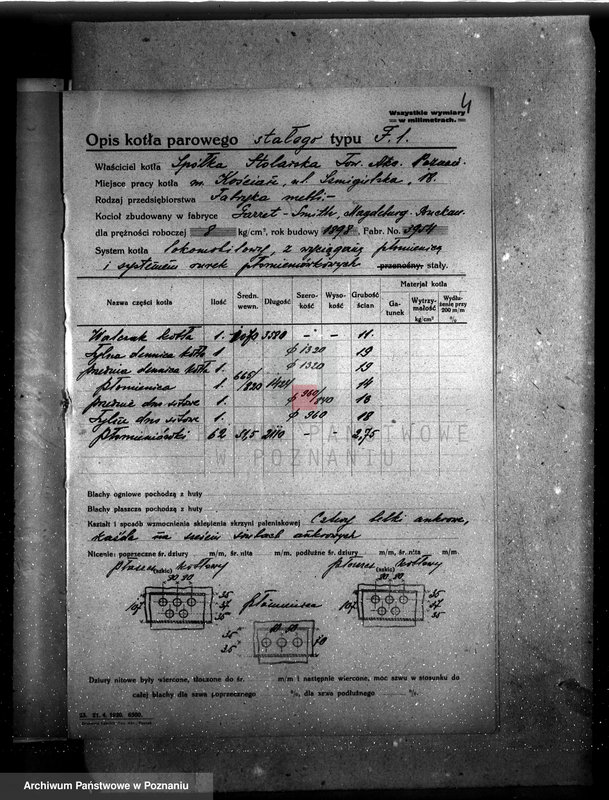 4
Wszystkie wymiary
w milimetrach.
Opis kotła parowego stałego typu F.1.
Właściciel kotła Spółka Stolarska Tow. Akc. Poznań
Miejsce pracy kotła m. Kościan, ul. Śmigielska, 18.
Rodzaj przedsiębiorstwa Fabryka mebli.-
Kocioł zbudowany w fabryce Garret-Smith, Magdeburg-Buckau.
dla prężności roboczej 8 kg/cm², rok budowy 1898, Fabr. No. 3954
System kotła lokomobilowy, z wyciąganą płomienicą
i systemem rurek płomieniówkowych przenośny, stały.
Nazwa części kotła Ilość Średn. wewn. Długość Szerokość Wysokość Grubość ścian Materjał kotła
Gatunek Wytrzymałość kg/cm² Wydłużenie przy 200 m/m %
Walczak kotła 1. 1070 3580 - - 11
Tylna dennica kotła 1. ø 1320 19
przednia dennica kotła 1. ø 1320 19
płomienica 1. 665/820 14
przednie dno sitowe 1. ø 960/840 18
Tylne dno sitowe 1. ø 960 18
płomieniówki 62 51,5 2110 - 2,75
PAŃSTWOWE
W POZNANIU
Blachy ogniowe pochodzą z huty
Blachy płaszcza pochodzą z huty
Kształt i sposób wzmocnienia sklepienia skrzyni paleniskowej Cztery belki ankrowe,
każda na sześciu śrubach ankrowych
Nicenie: poprzeczne śr. dziury m/m, śr. nita m/m. podłużne śr. dziury m/m, śr. nita m/m.
płaszcz kotłowy (szkic) płaszcz kotłowy (szkic)
90 90 90 90
107 35 37 35 płomienica 107 35 37 35
35 35 60 60 70
Dziury nitowe były wiercone, tłoczone do śr. m/m i następnie wiercone, moc szwu w stosunku do
całej blachy dla szwa poprzecznego %, dla szwa podłużnego %.
23. 21. 4. 1920. 6500.
Archiwum Państwowe w Poznaniu